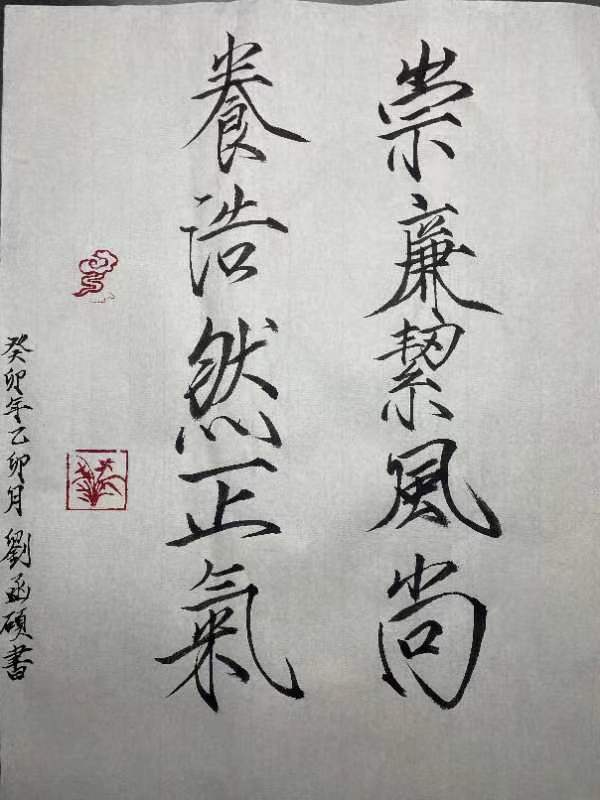 崇廉絜風尚
養浩然正氣
癸卯年乙卯月劉函碩書